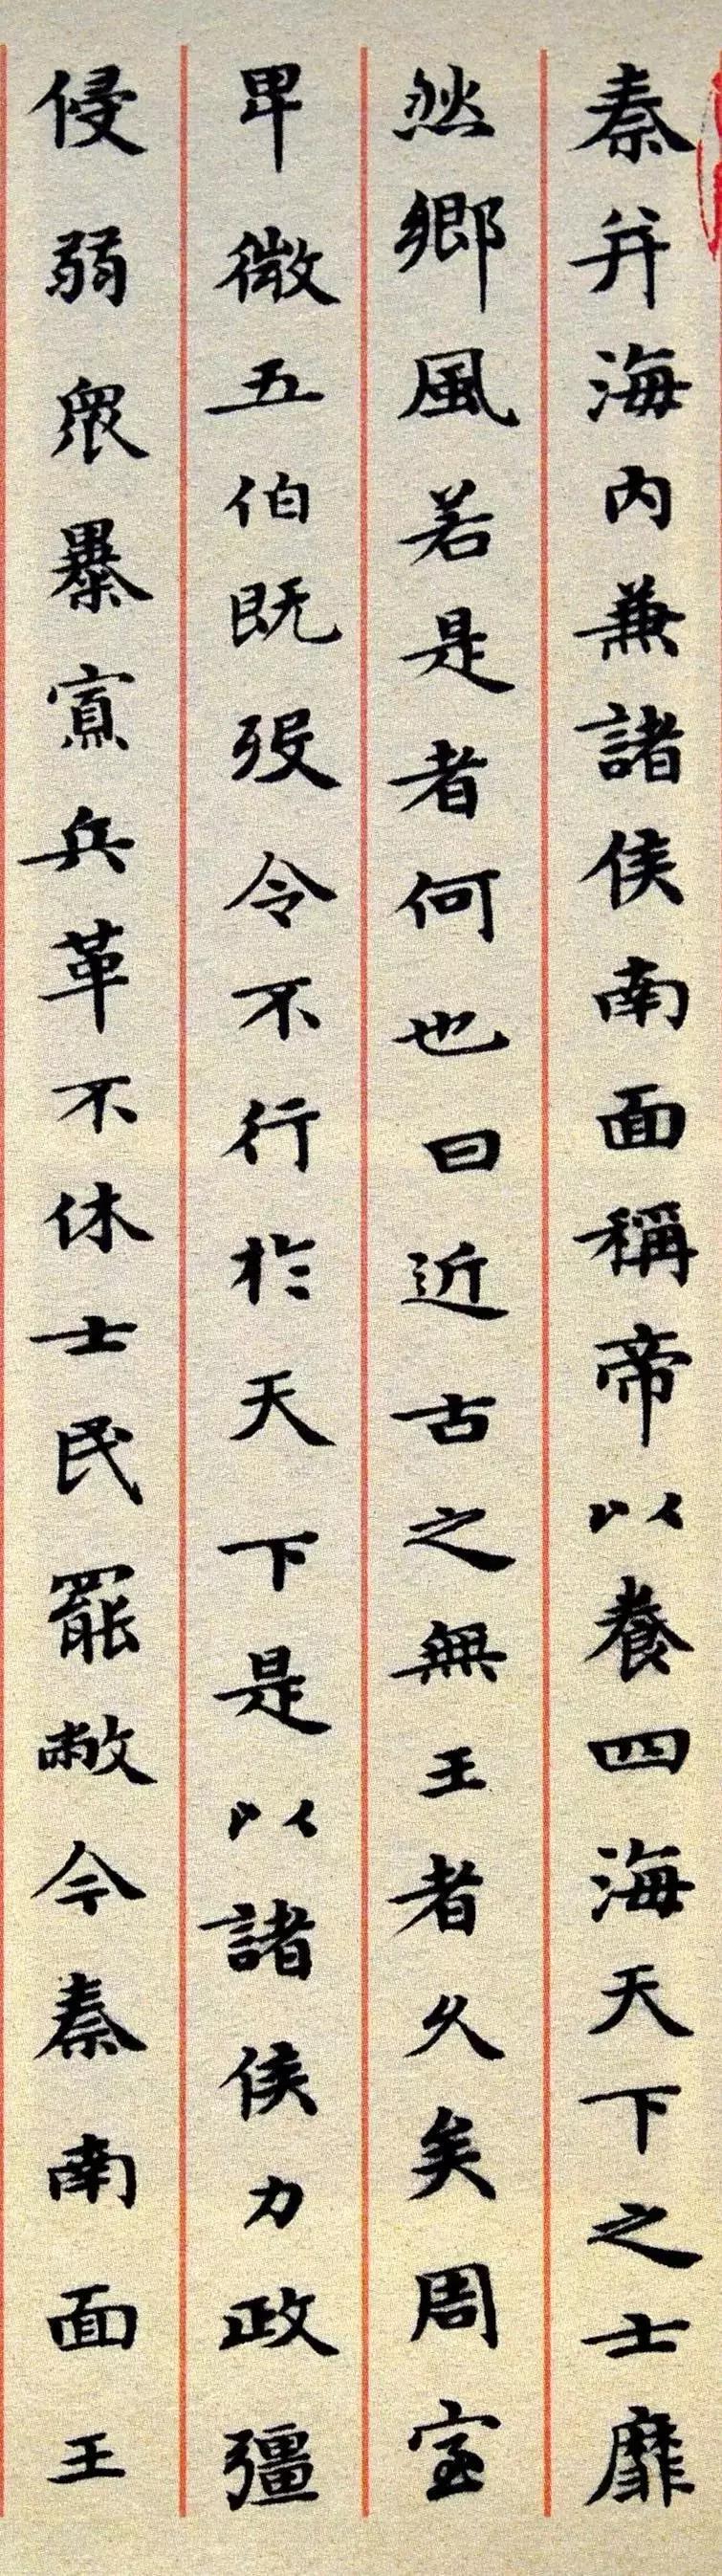 秦并海内兼諸侯南面稱帝以養四海天下之士靡
然鄉風若是者何也曰近古之無王者久矣周室
卑微五伯既歿令不行於天下是以諸侯力政彊
侵弱眾暴寡兵革不休士民罷敝今秦南面王